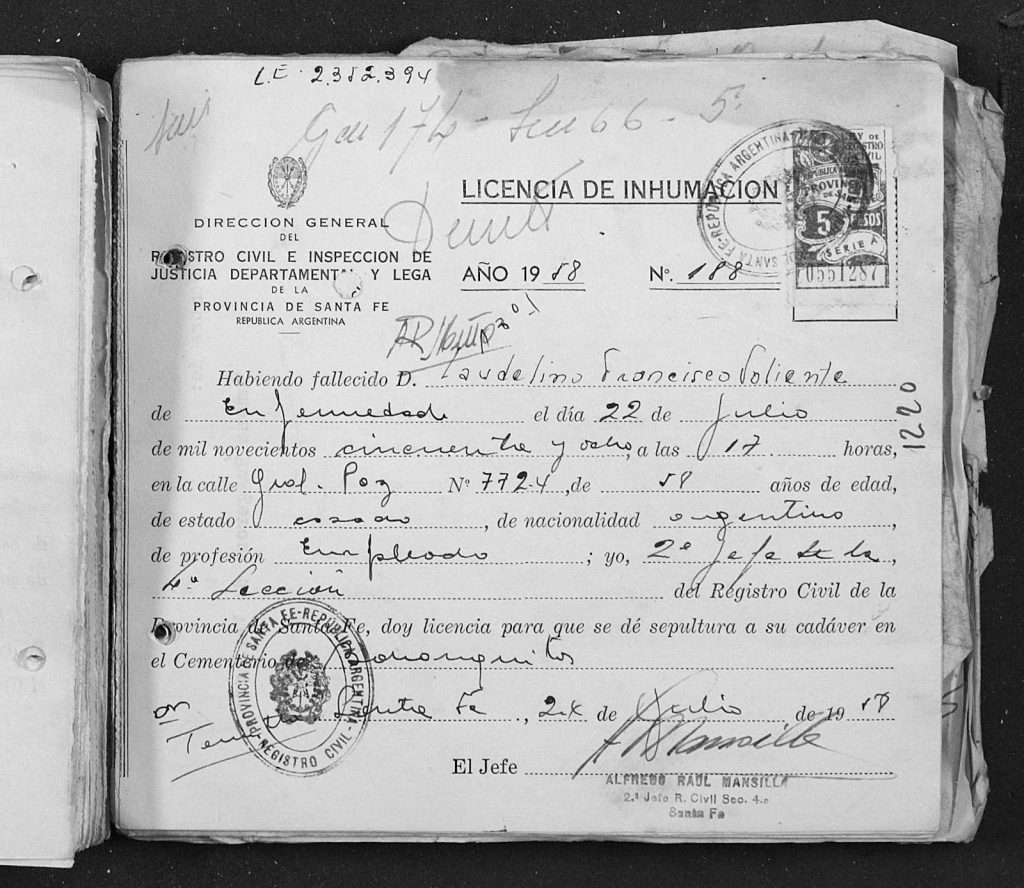 L.E. 2.352.394
174 - 66 - 5
LICENCIA DE INHUMACION
DIRECCION GENERAL
DEL
REGISTRO CIVIL E INSPECCION DE
JUSTICIA DEPARTAMENTAL Y LEGA
DE LA
PROVINCIA DE SANTA FE
REPUBLICA ARGENTINA
AÑO 1958 Nº. 188
LEY DE
REGISTRO
CIVIL
REPUBLICA
PROVIN
DE SA
5 PESOS
SERIE A
0551287
SANTA FE-REPUBLICA ARGENTINA
Habiendo fallecido D. Laudelino Francisco
de Enfermedad el día 22 de Julio
de mil novecientos cincuenta y ocho, a las 17 horas,
1220
en la calle Gral. Paz Nº 7724, de 58 años de edad,
de estado casado, de nacionalidad argentino,
de profesión Empleado; yo, 2º Jefe de la
4ª Sección del Registro Civil de la
Provincia de Santa Fe, doy licencia para que se dé sepultura a su cadáver en
el Cementerio de
Santa Fe, 24 de Julio de 1958
PROVINCIA DE SANTA FE-REPUBLICA ARGENTINA
REGISTRO CIVIL
El Jefe
ALFREDO RAUL MANSILLA
2.º Jefe R. Civil Sec. 4.a
Santa Fe